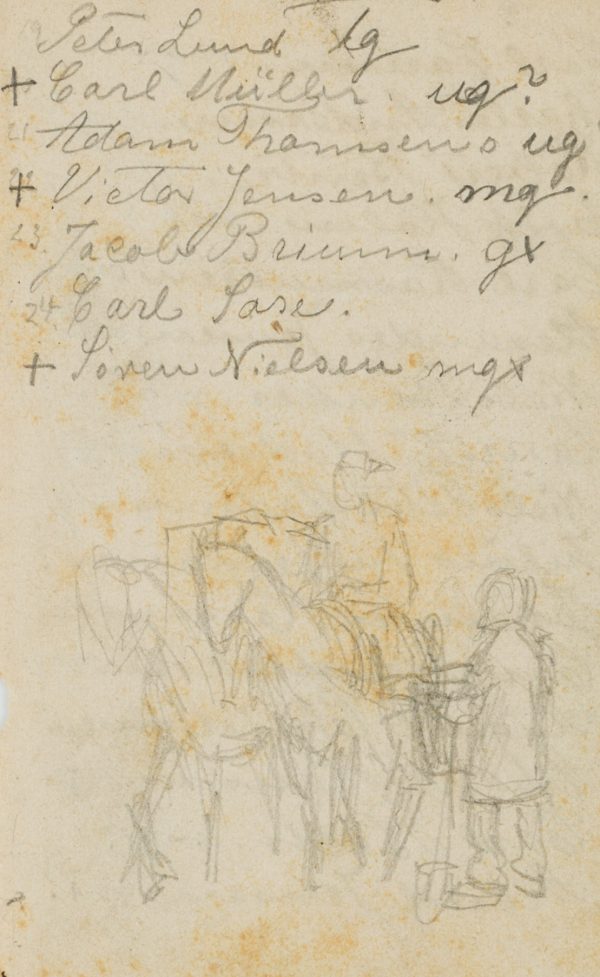 Peter Lund tg
+ Carl Müller. ug?
21 Adam Thomsen o ug
+ Victor Jensen. mg.
23. Jacob Briumm. gx
24. Carl
+ Sören Nielsen mgx